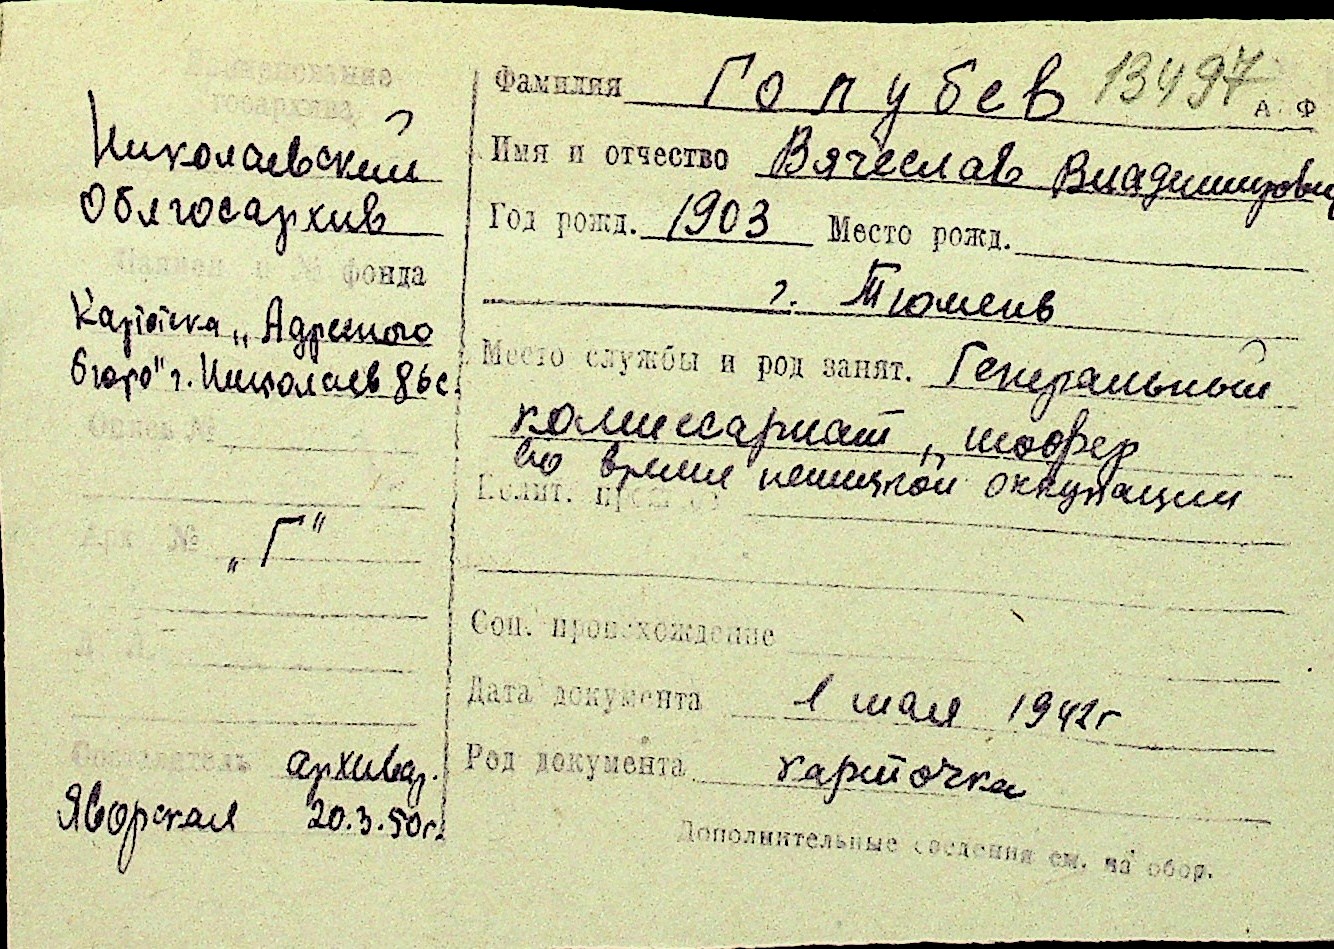 Наименование
госархива
Николаевский
Облгосархив
Назван. и № фонда
Картотека „Адресного
бюро" г. Николаев 86с.
Опись №
Арх №
„Г"
Л. Л.
Составитель архивар.
Яворская 20.3.50г.
Фамилия Голубев 13497 А. Ф
Имя и отчество Вячеслав Владимирович
Год рожд. 1903 Место рожд.
г. Тюмень
Место службы и род занят. Генеральный
комиссариат, шофер
во время немецкой оккупации
Полит.
Соц. происхождение
Дата документа 1 мая 1942г
Род документа карточка
Дополнительные сведения см. на обор.